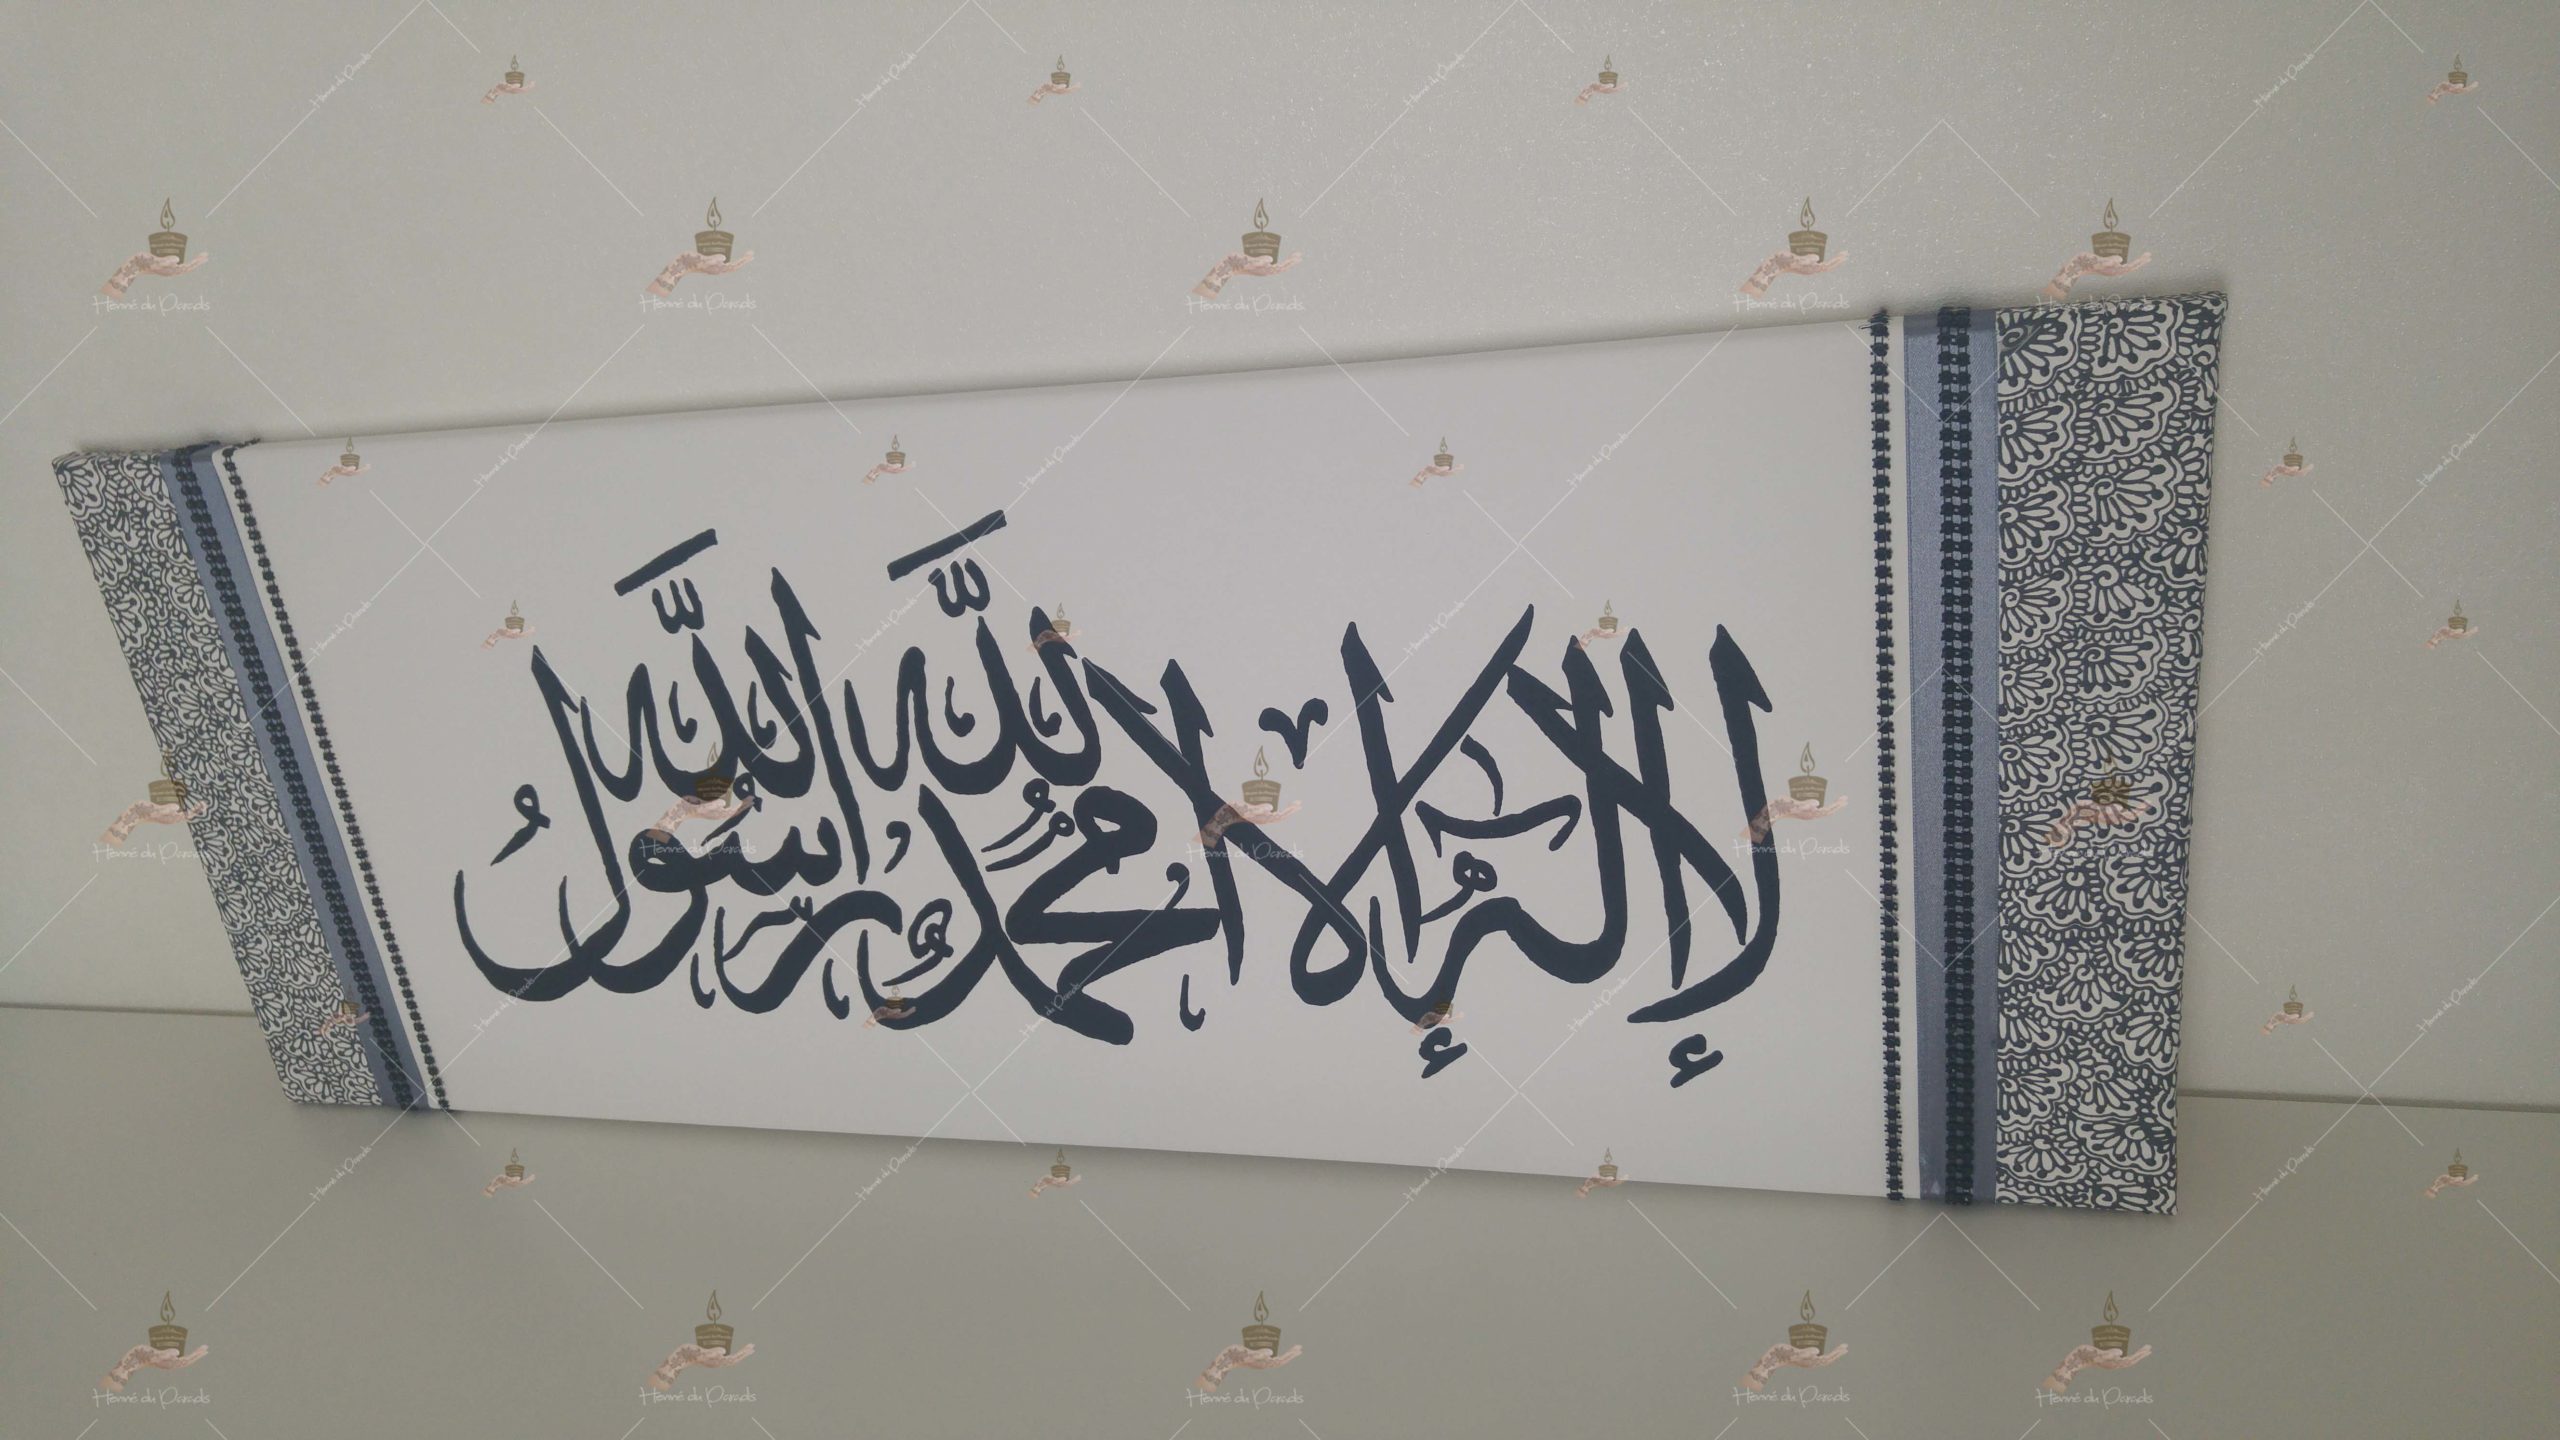 لا إله إلا الله محمد رسول الله
Henné du Paradis